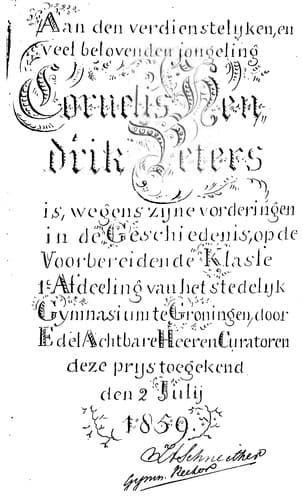 Aan den verdienstelyken, en
veel belovenden jongeling
Cornelis Hen
drik Peters
is, wegens zyne vorderingen
in de Geschiedenis, op de
Voorbereidende Klasse
1e Afdeeling van het stedelyk
Gymnasium te Groningen, door
Edel Achtbare Heeren Curatoren
deze prys toegekend
den 2 Julij
1859.
Schneither
Gymn. Rector